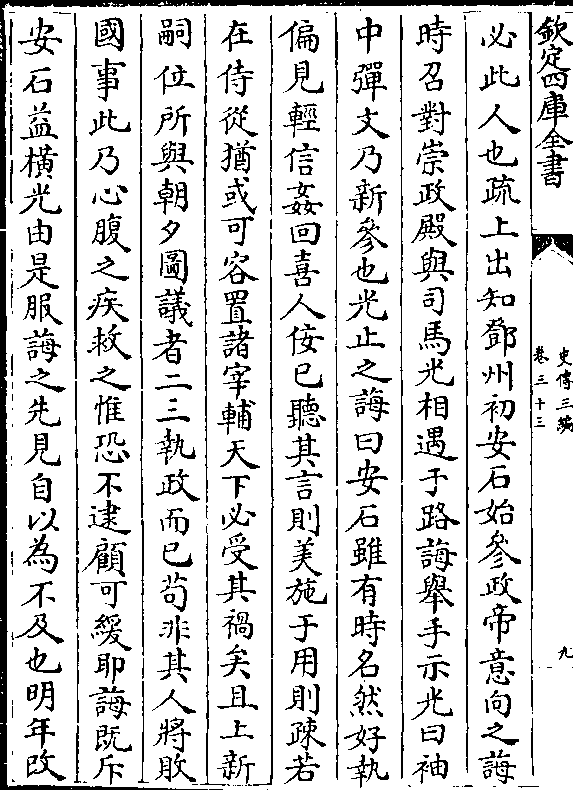 欽定四庫全書
史傳三編
卷三十三
九
必此人也疏上出知鄧州初安石始參政帝意向之誨
時召對崇政殿與司馬光相遇于路誨舉手示光曰袖
中彈文乃新參也光止之誨曰安石雖有時名然好執
偏見輕信姦回喜人佞已聽其言則美施于用則疎若
在侍從猶或可容置諸宰輔天下必受其禍矣且上新
嗣位所與朝夕圖議者二三執政而已苟非其人將敗
國事此乃心腹之疾救之惟恐不逮顧可緩耶誨既斥
安石益橫光由是服誨之先見自以為不及也明年改